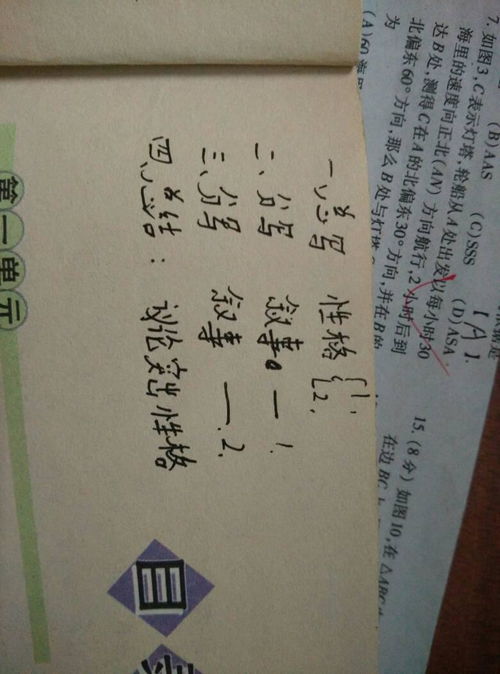 (B)AAS (C)SSS (D)ASA
【A】
7. 如图3,C表示灯塔,轮船从A处出发以每小时30
海里的速度向正北(AN)方向航行,2小时后到
达B处,测得C在A的北偏东30°方向,并在B的
北偏东60°方向,那么B处与灯塔
为
(A)60海里
15. (8分)如图10,在△ABC中
在边BC上
一、总写 性格{1、
2、
二、分写 叙事。—1.
三、分写 叙事 —.2.
四、总结: 议论突出性格
目
第一单元